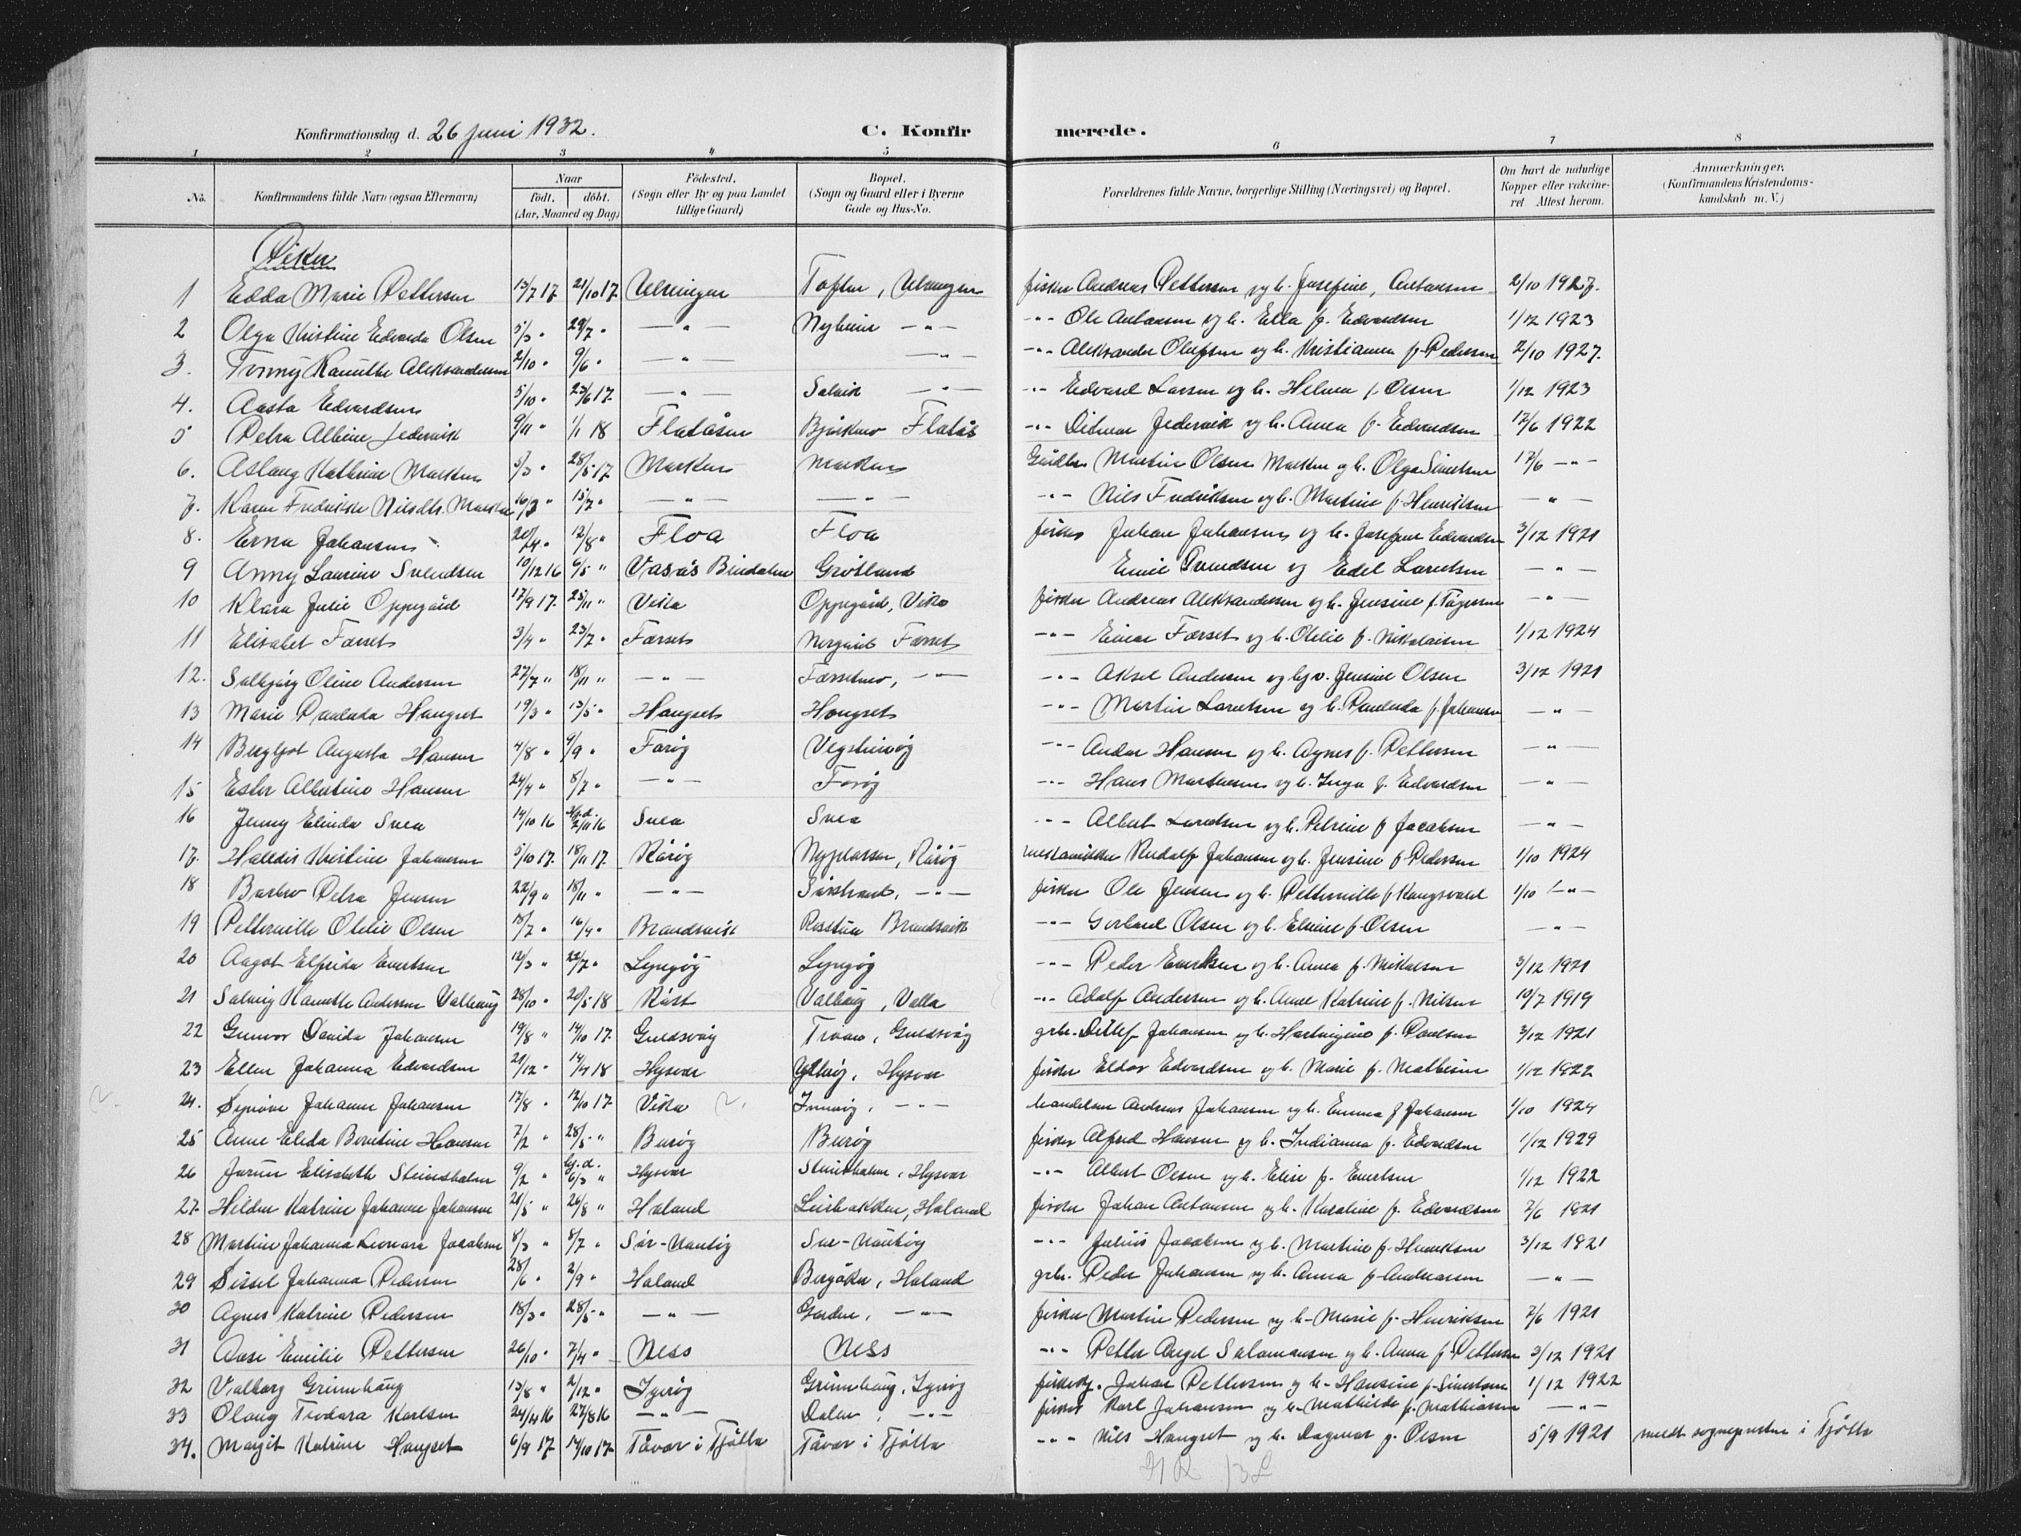 Konfirmationsdag d. 26 juni 1932. C. Konfir merede.
1 2 3 4 5 6 7 8
No. Konfirmandens fulde Navn (ogsaa Efternavn) Naar födt. döbt. (Aar, Maaned og Dag) Födested. (Sogn eller By og paa Landet tillige Gaard) Bopæl. (Sogn og Gaard eller i Byerne Gade og Hus-No. Forældrenes fulde Navne, borgerlige Stilling (Næringsvei) og Bopæl. Om havt de naturlige Kopper eller vakcineret. Attest herom. Anmerkninger. (Konfirmandens Kristendomskundskab m. V.)
Piker
1 Edda Marie Pettersen 13/7 17 21/10 17 Ulvingen Toften, Ulvingen fisker Andreas Pettersen og h. Josefine, Antonsen 2/10 1927.
2 Olga Kristine Edvarda Olsen 5/3 " 29/7 " — " — Nyheim — " — - " - Ole Antonsen og h. Ella f. Edvardsen 1/12 1923
3. Kamilla Aleksandersen 2/10 " 9/6 " — " — — " — - " - Aleksander Olufsen og h. Kristianna f. Pedersen 2/10 1927.
4. Aasta Edvardsen 5/10 " 23/6 17. — " — Solvik — " — - " - Edvard Larsen og h. Helma f. Olsen 1/12 1923
5 Petra Albine Jedervik 9/11 " 1/1 18 Flatåsen Bjørkmo Flatås - " - Ditmar Jedervik og h. Anna f. Edvardsen 17/6 1922
6. Aslaug Kathrine Marken 3/3 " 28/5 17 Marken Marken Gårdbr. Martin Olsen Marken og h. Olga Simonsen 17/6 — " —
7. Karen Fredrikke Nilsdtr. Marken 16/3 " 15/7 " — " — — " — - " - Nils Fredriksen og h. Martine f. Henriksen — " —
8. Erna Johansen 20/4 " 12/8 " Floa Floa fisker Johan Johansen og h. Josefine Edvardsen 3/12 1921
9 Anny Laurine Svendsen 10/12 16 6/5 " Vasås Bindalen Grøtland Svendsen og Edel Larntsen — " —
10 Klara Julie Oppegård 17/9 17. 25/11 " Vika Oppegård, Vika fisker Andreas Aleksandersen og h. Jensine f. — " —
11 Elisabet Forset 3/4 " 23/7 " Forset Norgård Forset — " — Einar Forset og h. Otelie f. Nikolaisen 1/12 1924
12. Solbjørg Oline Andersen 27/7 " 18/11 " — " — Forsetmo, — " — - " - Aksel Andersen og Jensine Olsen 3/12 1921
13 Marie Paulnda Hongset 19/3 " 13/5 " Hongset Hongset - " - Martin Larntsen og h. Paulnda f. Johansen — " —
14 Bergljot Augusta Hansen 4/8 " 9/9 " Forøy Vegsteinvåg - " - Ander Hansen og h. Agnes f. Pettersen — " —
15 Ester Albertine Hansen 24/4 " 8/7 " — " — Forøy - " - Hans Martinsen og h. Inga f. Edvardsen — " —
16 Jenny Elinda Svea 14/10 16 Hj.d. 2/11 16 Svea Svea - " - Albert Larntsen og h. Petrine f. Jacobsen — " —
17. Halldis Kristine Johansen 5/10 17. 18/11 17. Rørøy Nyplassen, Rørøy mekaniker Rudolf Johansen og h. Jensine f. Pedersen 1/10 1924
18 Barbro Petra Jensen 22/9 " 18/11 " — " — Sørstrand, — " — fisker Ole Jensen og h. Petternille f. Kongsvold 1/10 — " —
19 Petternille Otelie Olsen 18/7 " 16/9 " Brandsvik Rosstua Brandsvik - " - Gerhard Olsen og h. Elvine f. Olsen — " —
20 Aagot Elfrida Evertsen 12/3 " 22/7 " Lyngøy Lyngøy - " - Peder Evertsen og h. Anna f. Nikolsen 3/12 1921
21 Solveig Kamilla Andersen Valhaug 28/10 " 20/5 18 Røst Valhaug, Valla - " - Adolf Andersen og h. Anne Katrine f. Nilsen 19/7 1919
22 Gunvor Davida Johansen 19/8 " 14/10 17. Guldsvåg Guldsvåg grbr. Ditlef Johansen og h. Hartvigine f. Paulsen 3/12 1921
23 Ellen Johanna Edvardsen 21/12 " 14/4 18 Hysvær Hysvær fisker Eldor Edvardsen og h. Marie f. Mathisen 1/12 1922
24. Synøve Johanne Johansen 17/8 " 12/10 17. Vika Innvåg, — " — handelsm. Andreas Johansen og h. Emma f Johansen 1/10 1924
25 Anne Elida Berntine Hansen 7/2 " 28/5 " Burøy Burøy fisker Alfred Hansen og h. Indianna f. Edvardsen 1/12 1929
26 Jorunn Elisabeth Steinsholm 9/2 " hj.d. 6/3 " Hysvær Steinsholm, Hysvær - " - Albert Olsen og h. Elise f. Evertsen 1/12 1922
27. Hildur Katrine Johanne Johansen 21/5 " 26/8 " Holand Leirbakken, Holand fisker Johan Antonsen og h. Karoline f. Edvardsen 7/6 1921
28 Martine Johanna Leonora Jacobsen 8/3 " 8/7 " Sør-Nautøy Sør-Nautøy - " - Julius Jacobsen og h. Martine f. Henriksen 3/12 1921
29 Sissel Johanna Pedersen 28/6 " 2/9 " Holand Bergåker, Holand grbr. Peder Johansen og h. Anna f. Andreassen — " —
30 Agnes Katrine Pedersen 18/3 " 28/5 " — " — Gården, — " — fisker Martin Pedersen og h. Marie f. Henriksen 7/6 1921
31 Aase Emilie Pettersen 26/10 " 7/4 " Ness Ness - " - Petter Angel Salomonsen og h. Anna f. Pettersen 3/12 1921
32 Valborg Grønnhaug 13/8 " 2/12 " Igerøy Grønnhaug, Igerøy Johan Pettersen og h. Hansine f. Simonsen 1/12 1922
33 Olaug Teodora Karlsen 24/4 16 27/8 16 — " — Dalen, — " — fisker Karl Johansen og h. Mathilde f. Mathiassen — " —
34. Margit Katrine Hongset 6/9 17. 14/10 17. Tåvær i Tjøtta Tåvær i Tjøtta - " - Nils Hongset og h. Dagmar f. Olsen 5/9 1921 meldt sognepresten i Tjøtta